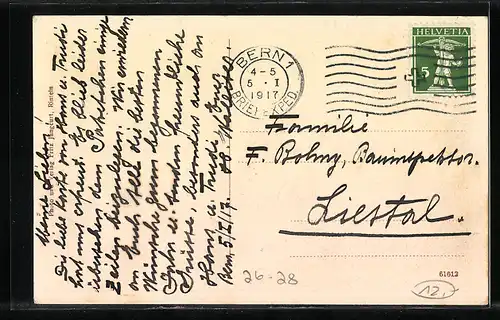 HELVETIA
5
BERN 1
4-5
5 I
1917
BRIEFEXPED.
Familie
F. Bohny, Bauinspektor.
Liestal.
61612
12.-
26-28
Meine Lieben!
Die liebe Karte von Hans u. Trudi
hat uns erfreut. Es blieb leider
unterlassen dem Paketchen einige
Zeilen beizulegen. Wir erwidern
an Euch alle die besten
Wünsche zum begonnenen
Jahr u. senden freundliche
Grüsse, besonders auch an
Hans u. Trudi. Eure
Bern, 5/I/17.
Verlag Fritz Jungfurt, Rieneis